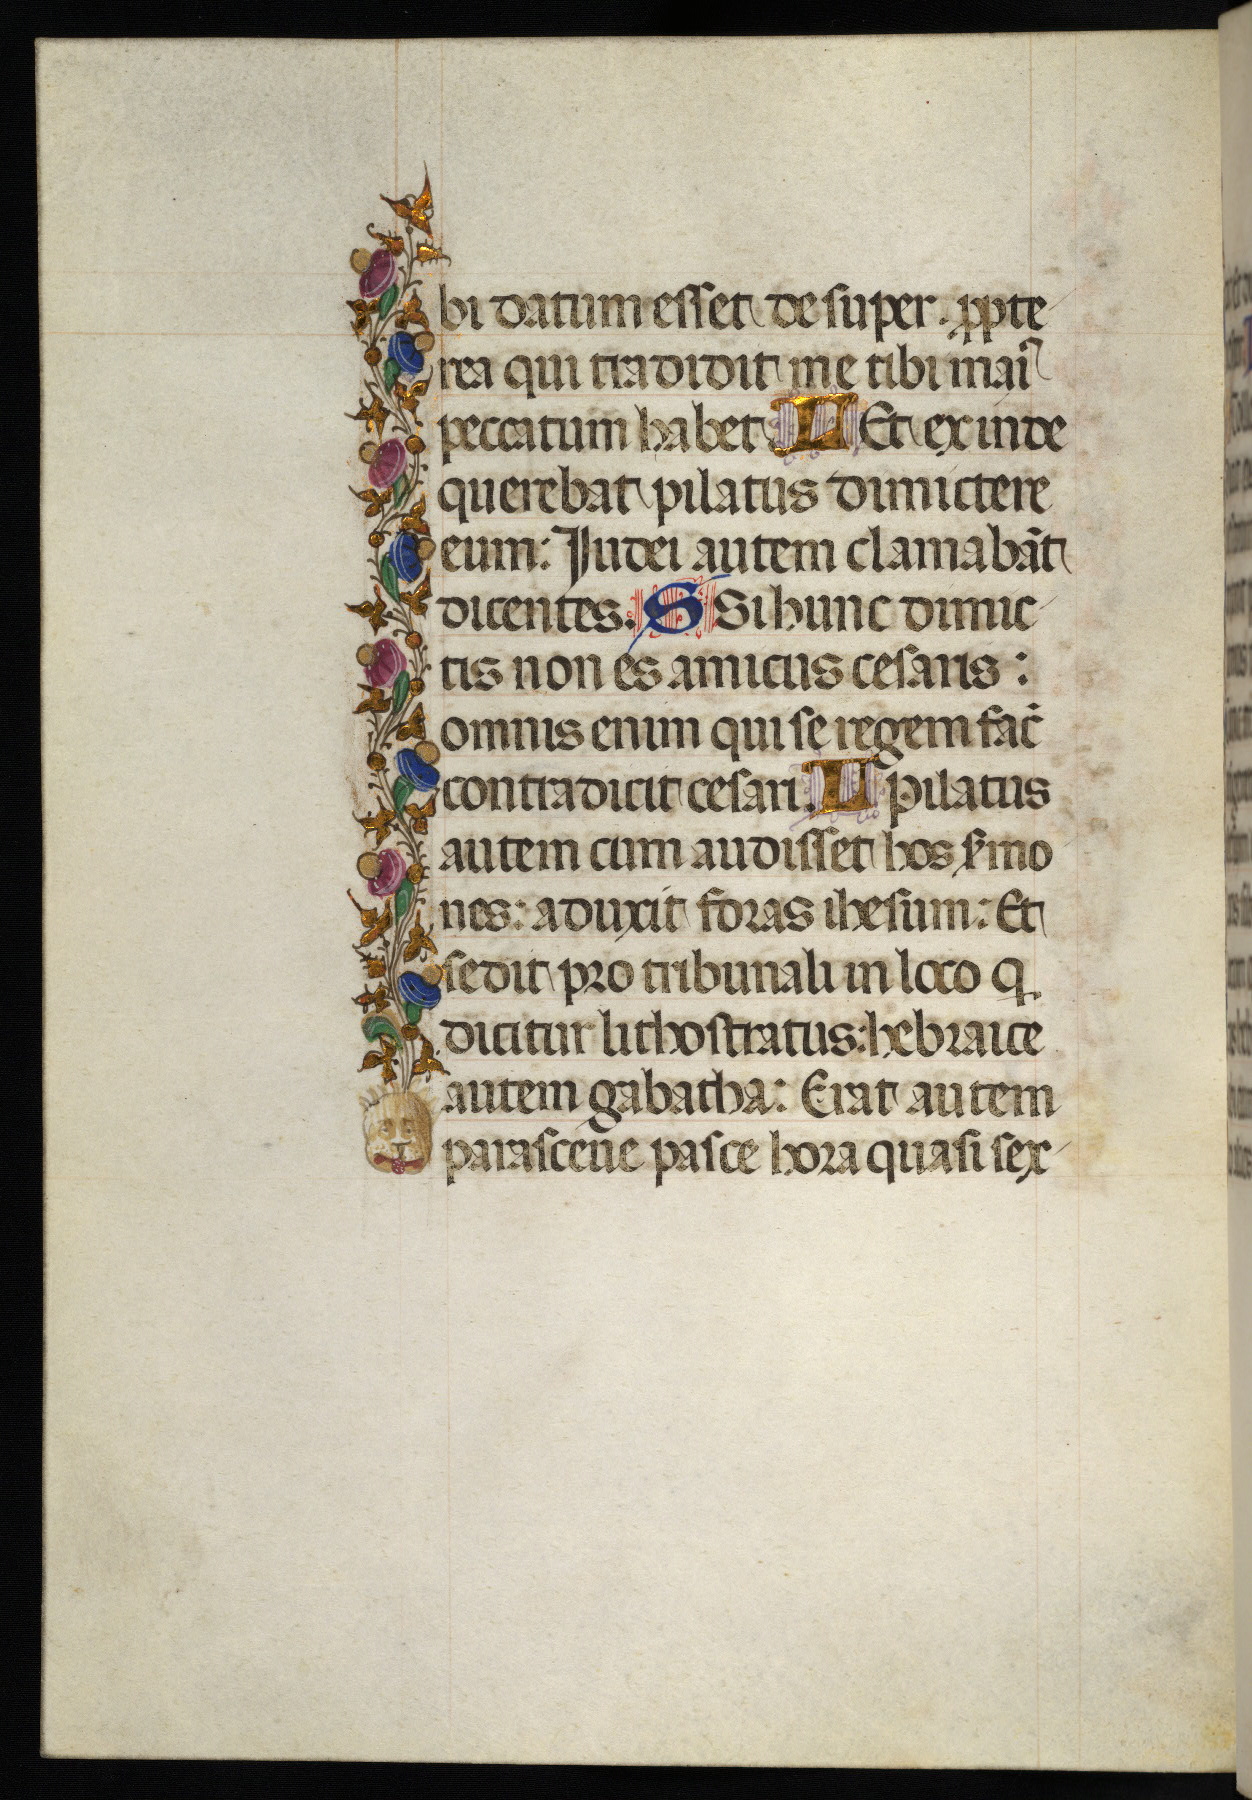 bi datum esset desuper. ppte
rea qui tradidit me tibi mai᷑
peccatum habet L Et exinde
querebat pilatus dimictere
eum: Judei autem clamabāt
dicentes. S Si hunc dimic
tis non es amicus cesaris :
omnis enim qui se regem fac̄
contradicit cesari. L Pilatus
autem cum audisset hos s̄mo
nes: aduxit foras ihesum: Et
sedit pro tribunali in loco q
dicitur lithostratus: hebraice
autem gabatha: Erat autem
parasceue pasce hora quasi sex